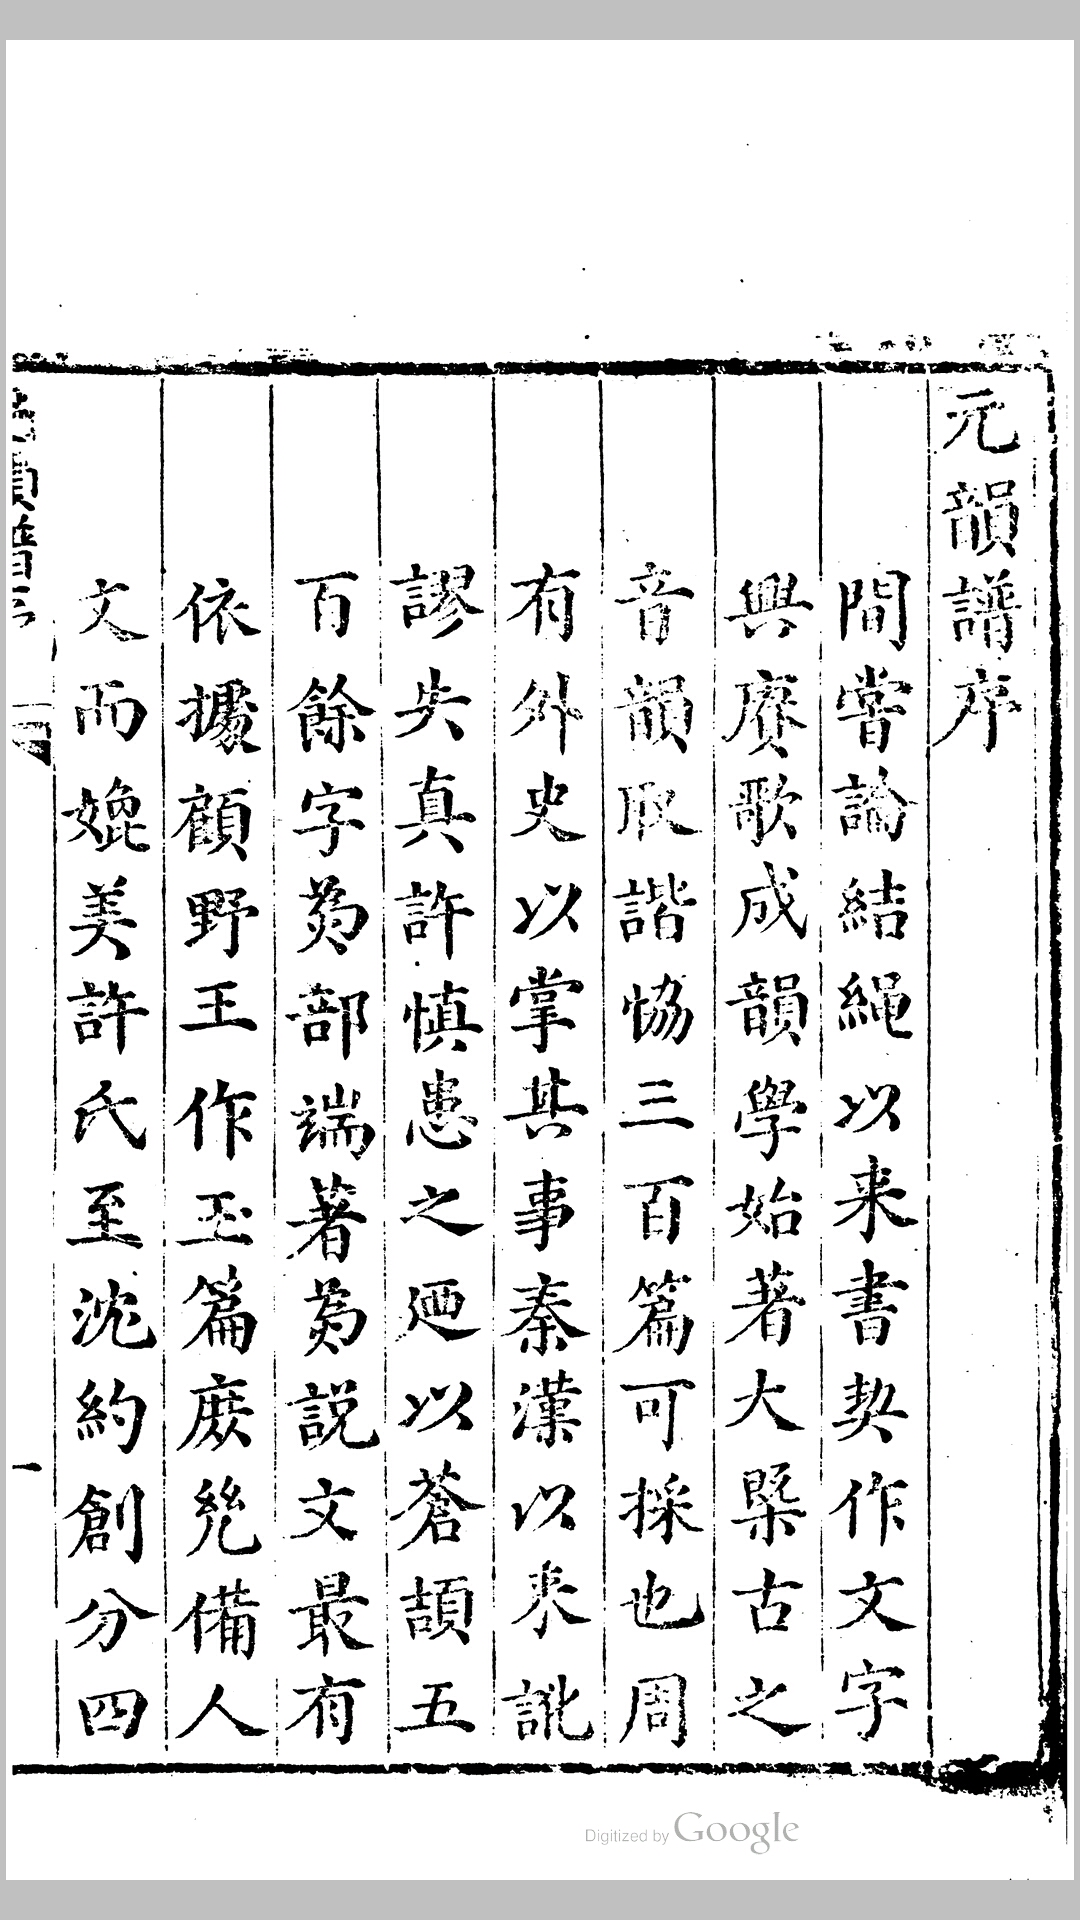 元韻譜序
間嘗論結繩以來書契作文字
興賡歌成韻學始著大槩古之
音韻取諧恊三百篇可採也周
有外史以掌其事秦漢以来訛
謬失真許慎患之廼以蒼頡五
百餘字為部端著為説文最有
依據顧野王作玉篇庶幾備人
文而媲美許氏至沈約創分四
韻譜
一
Digitized by Google